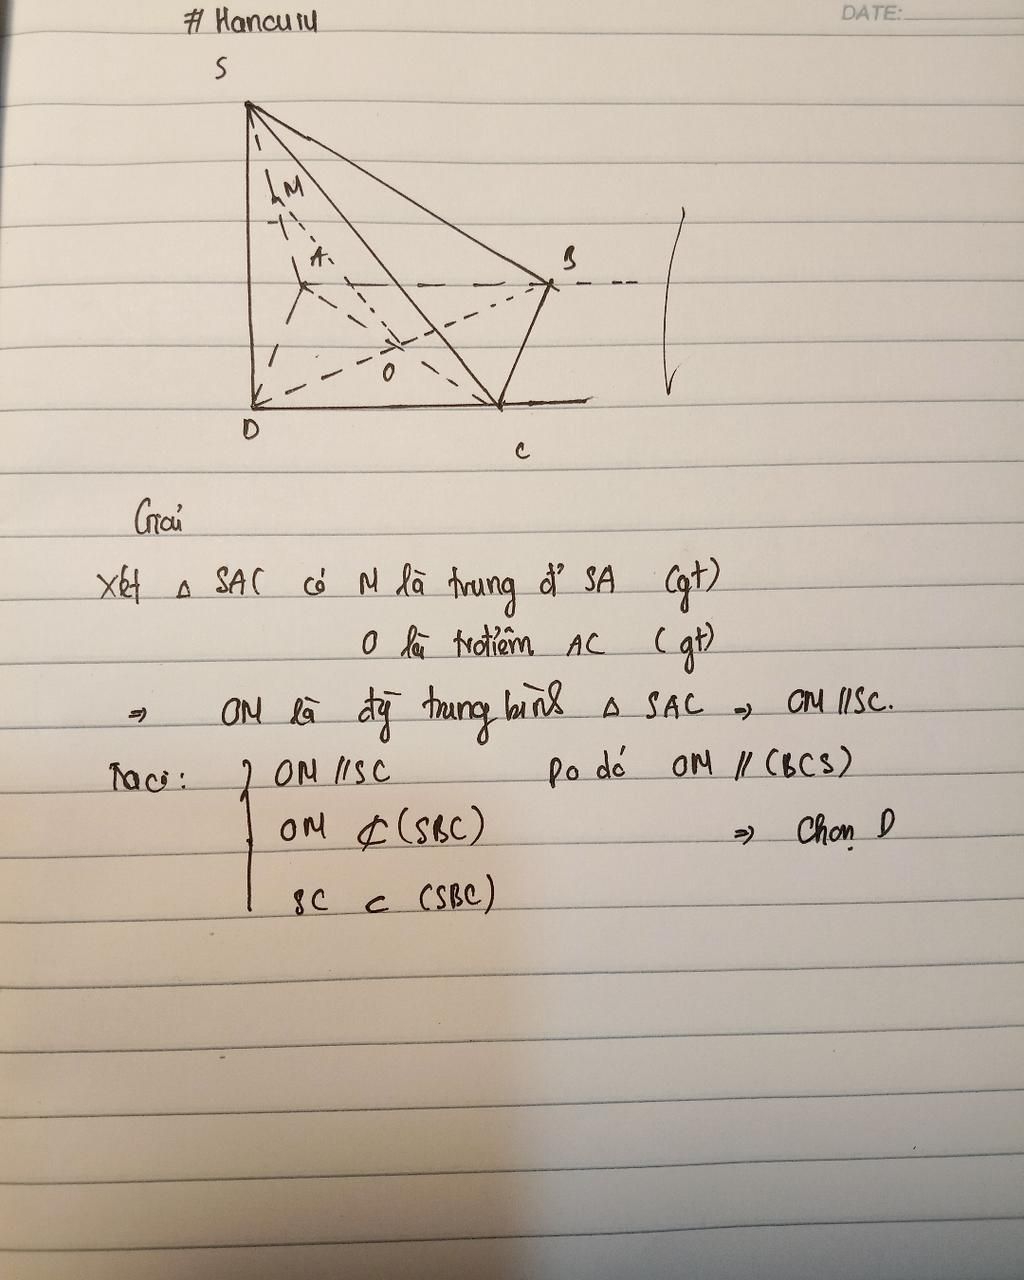 # Hancuiu
DATE:
S
M
A
B
O
D
C
Giải
Xét Δ SAC có M là trung đ' SA (gt)
O là trđiểm AC (gt)
⇒ OM là đg trung bình Δ SAC ⇒ OM // SC.
Ta có: { OM // SC Do đó OM // (BCS)
OM ⊄ (SBC) ⇒ Chọn D
SC ⊂ (SBC)